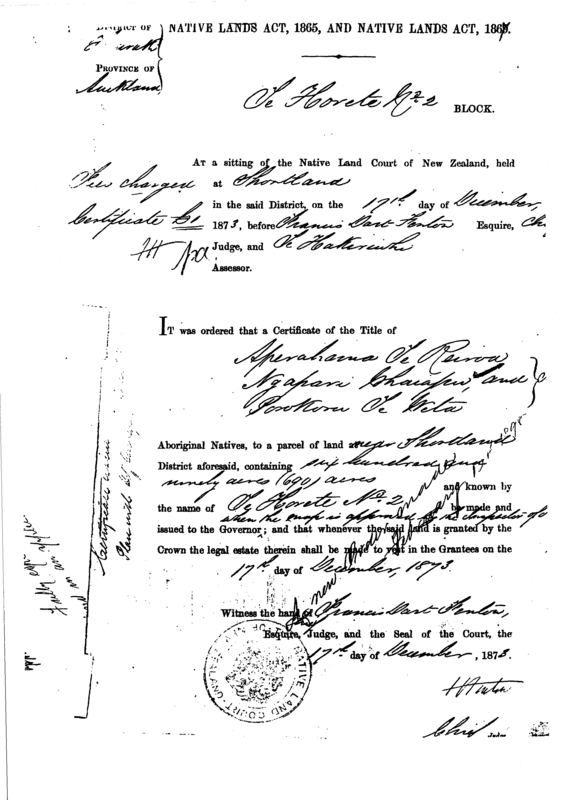 DISTRICT OF
NATIVE LANDS ACT, 1865, AND NATIVE LANDS ACT, 1867.
PROVINCE OF
Auckland
Te Horete No 2 BLOCK.
AT a sitting of the Native Land Court of New Zealand, held
Fees charged at Shortland
in the said District, on the 17th day of December,
Certificate £1 1873, before Francis Dart Fenton Esquire,
Judge, and Te
Assessor.
IT was ordered that a Certificate of the Title of
Aperahama Te Reiroa
Ngapari and
Te Weta
Aboriginal Natives, to a parcel of land near Shortland
District aforesaid, containing six hundred and
ninety acres (690) acres and known by
the name of Te Horete No 2 be made and
when the map is approved by the Inspector of
issued to the Governor; and that whenever the said land is granted by the
Crown the legal estate therein shall be made to vest in the Grantees on the
17th day of December, 1873.
Witness the hand of Francis Dart Fenton,
Esquire, Judge, and the Seal of the Court, the
17th day of December, 1873.
NATIVE LAND COURT
F D Fenton
Chief Judge